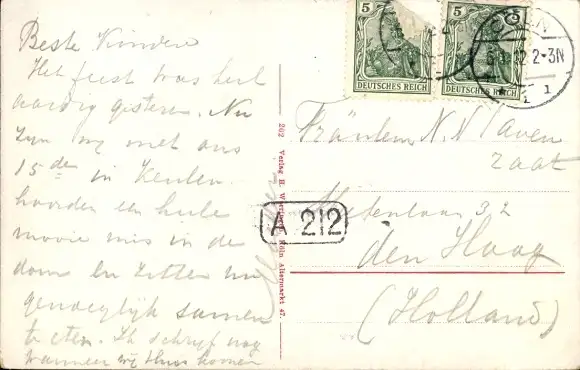 Beste Kinderen
Het feest was heel
aardig gisteren. Nu
zijn wij met ons
15 den in Keulen
hoorden een hele
mooie mis in de
dom en zitten nu
genoeglijk samen
te eten. Ik schrijf nog
wanneer wij thuis komen
202 Verlag H. Köln Altermarkt 47.
5
DEUTSCHES REICH
5
DEUTSCHES REICH
CÖLN
12 2-3N
1
Fräulein N. N
zaat
A 212
32
den Haag
(Holland)